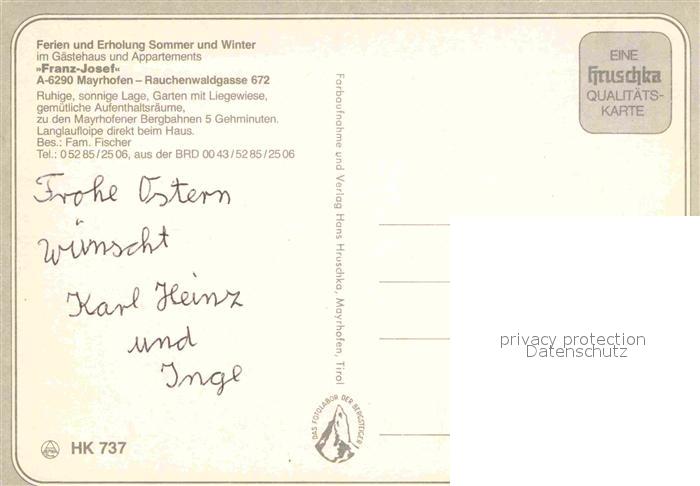 Ferien und Erholung Sommer und Winter
im Gästehaus und Appartements
»Franz-Josef«
A-6290 Mayrhofen – Rauchenwaldgasse 672
Ruhige, sonnige Lage, Garten mit Liegewiese,
gemütliche Aufenthaltsräume,
zu den Mayrhofener Bergbahnen 5 Gehminuten.
Langlaufloipe direkt beim Haus.
Bes.: Fam. Fischer
Tel.: 0 52 85 / 25 06, aus der BRD 00 43 / 52 85 / 25 06
Frohe Ostern
wünscht
Karl Heinz
und
Inge
HK 737
Farbaufnahme und Verlag Hans Hruschka, Mayrhofen, Tirol
DAS FOTOLABOR DER BERGSTEIGER
EINE
Hruschka
QUALITÄTS-
KARTE
privacy protection
Datenschutz